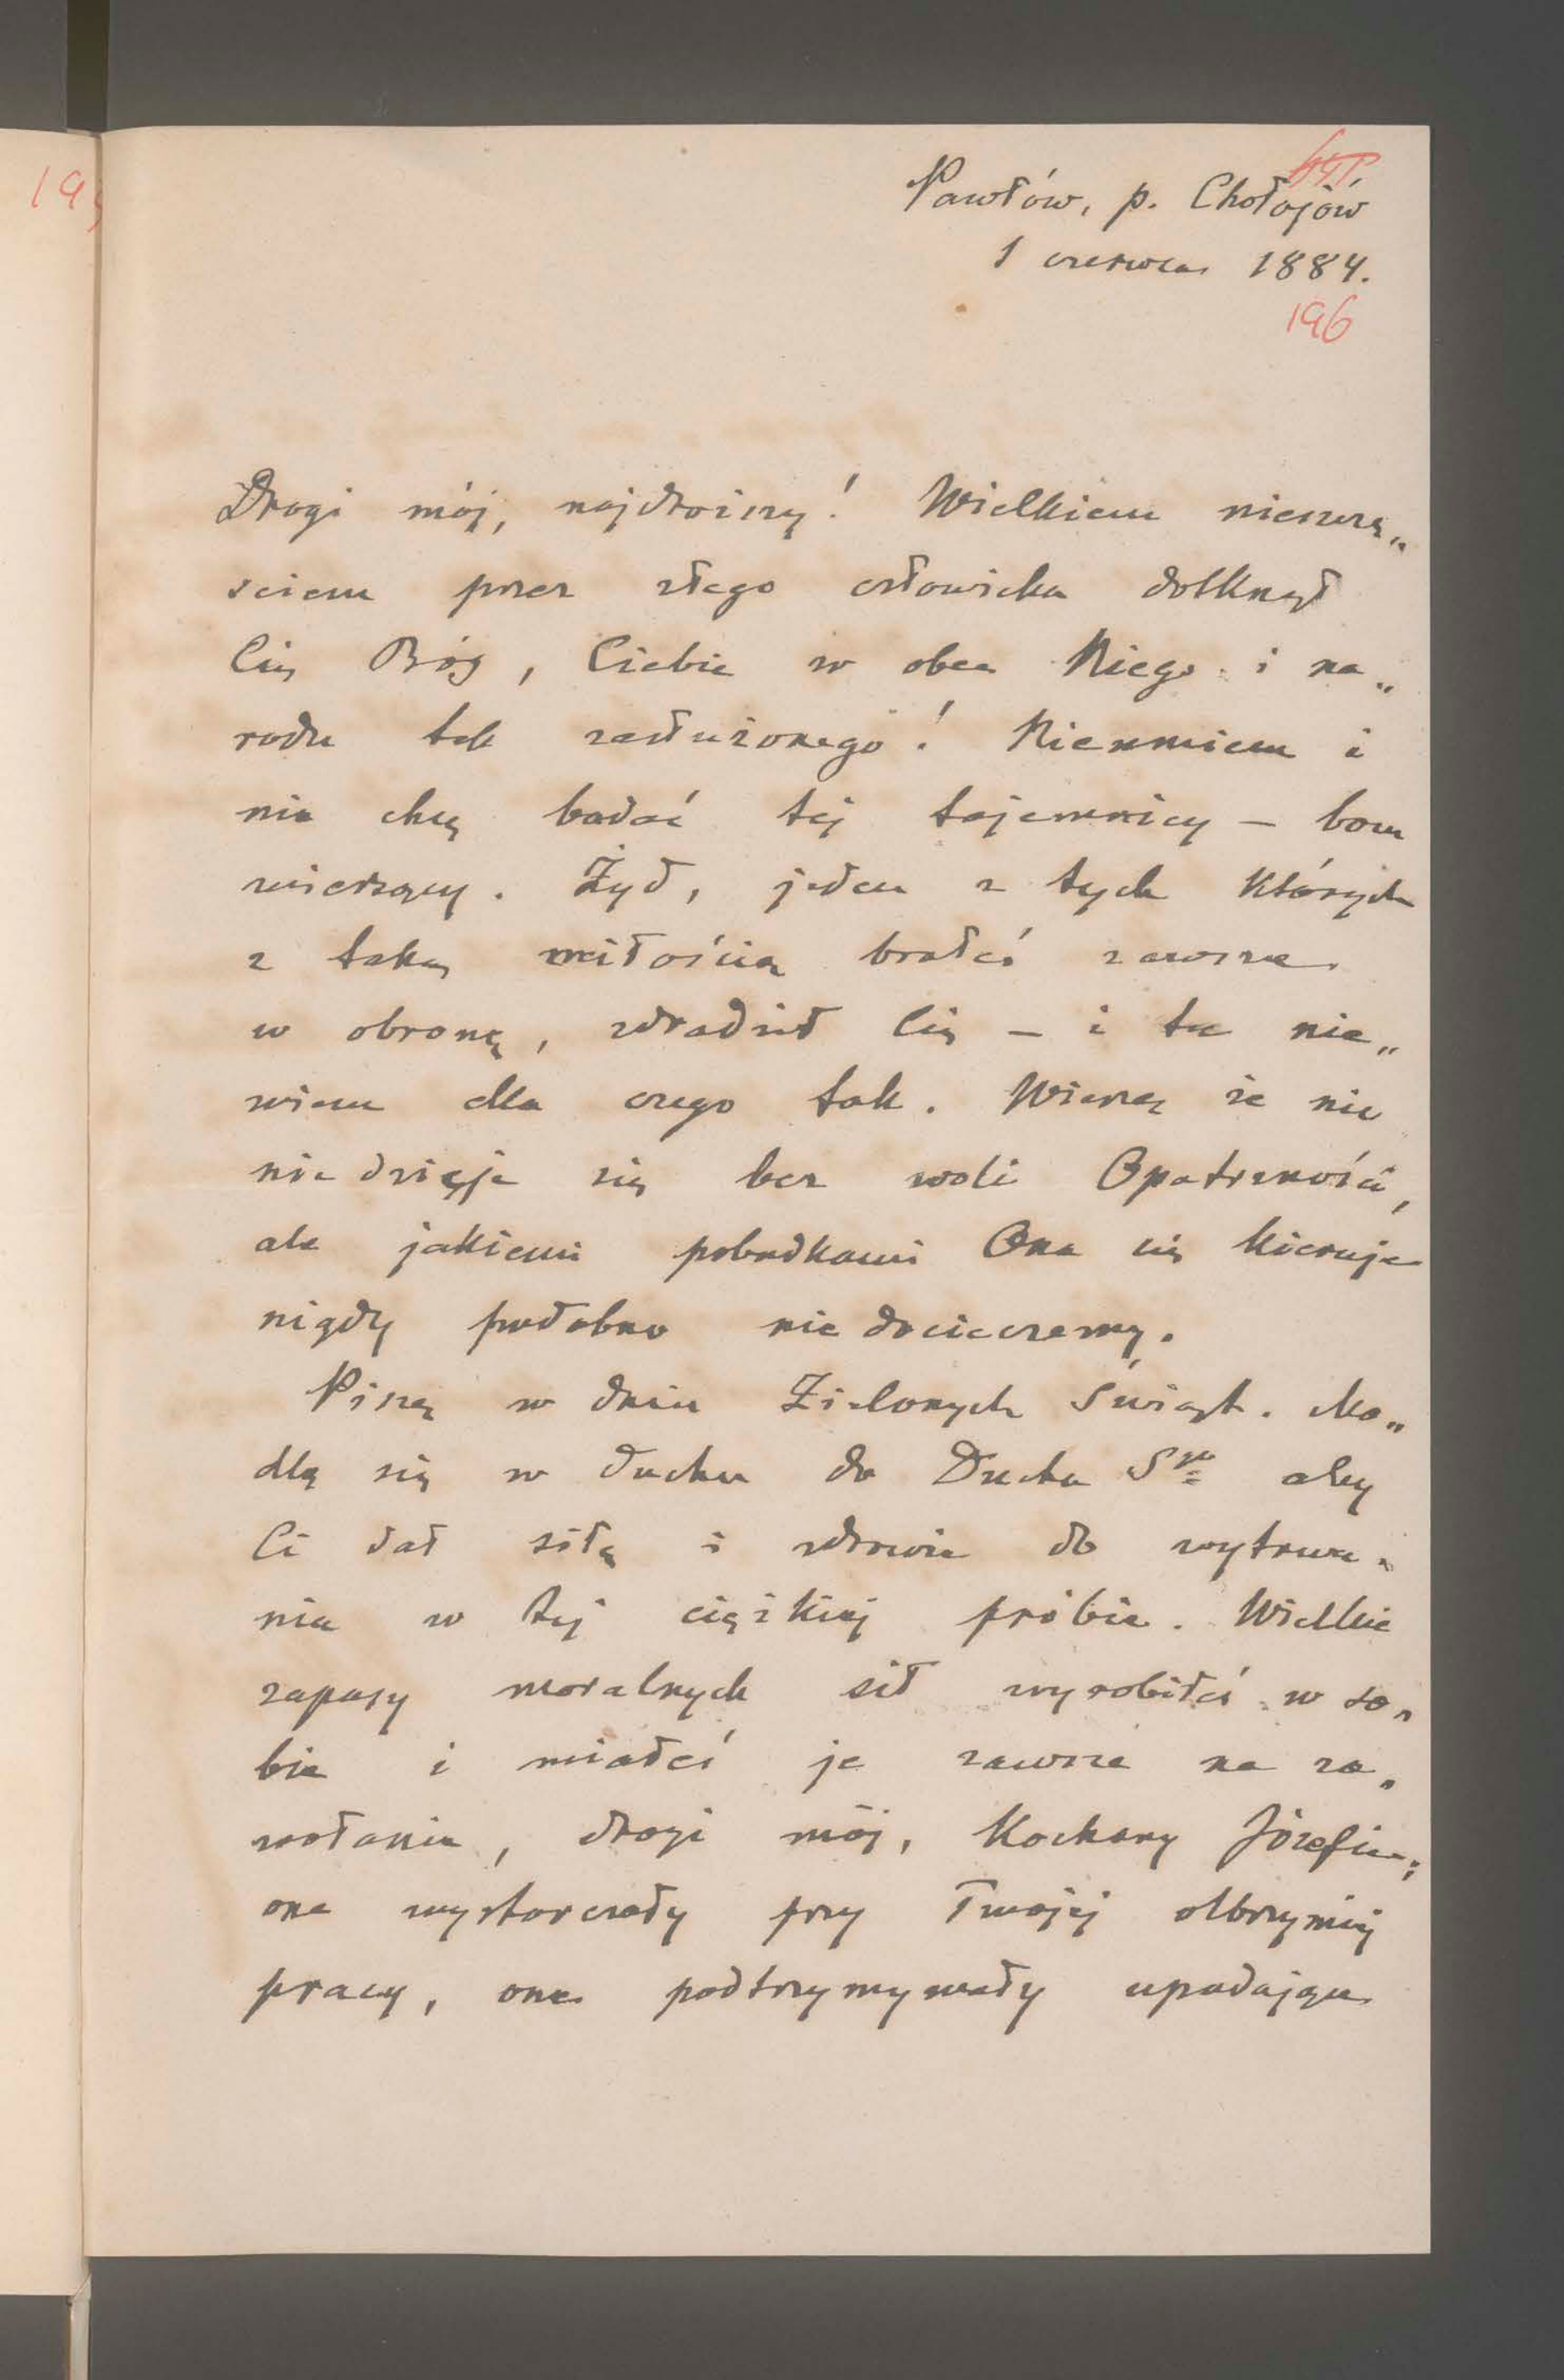 Pawłów, p. Chołojów
1 czerwca 1884.
196
Drogi mój, najdroższy! Wielkiem nieszczę„
ściem przez złego człowieka dotknął
Cię Bóg, Ciebie w obec Niego i na„
rodu tak zasłużonego! Nieumiem i
nie chcę badać tej tajemnicy – bom
wierzący. Żyd, jeden z tych których
z taką miłością brałeś zawsze
w obronę, zdradził Cię – i tu nie„
wiem dla czego tak. Wierzę że nic
nie dzieje się bez woli Opatrzności,
ale jakiemi pobudkami Ona się kieruje
nigdy podobno nie docieczemy.
Piszę w dniu Zielonych Świąt. Mo„
dlę się w duchu do Ducha Sgo aby
Ci dał siłę i zdrowie do wytrwa„
nia w tej ciężkiej próbie. Wielkie
zapasy moralnych sił wyrobiłeś w so„
bie i miałeś je zawsze na za„
wołanie, drogi mój, kochany Józefie;
one wystarczały przy Twojej olbrzymiej
pracy, one podtrzymywały upadające